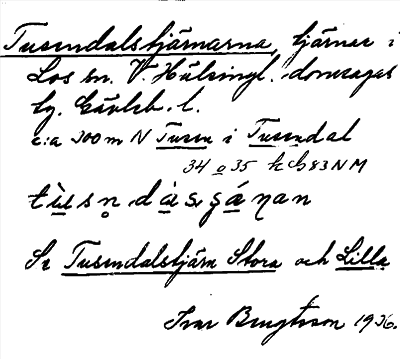 Tusendalstjärnarna, tjärnar i
Los sn. V. Hälsingl. domsagas
tg. Gävleb. l.
c:a 300 m N Tusen i Tusendal
34 o 35 h c b 83 N M
Se Tusendalstjärn Stora och Lilla
Ivar Bengtsson 1936.